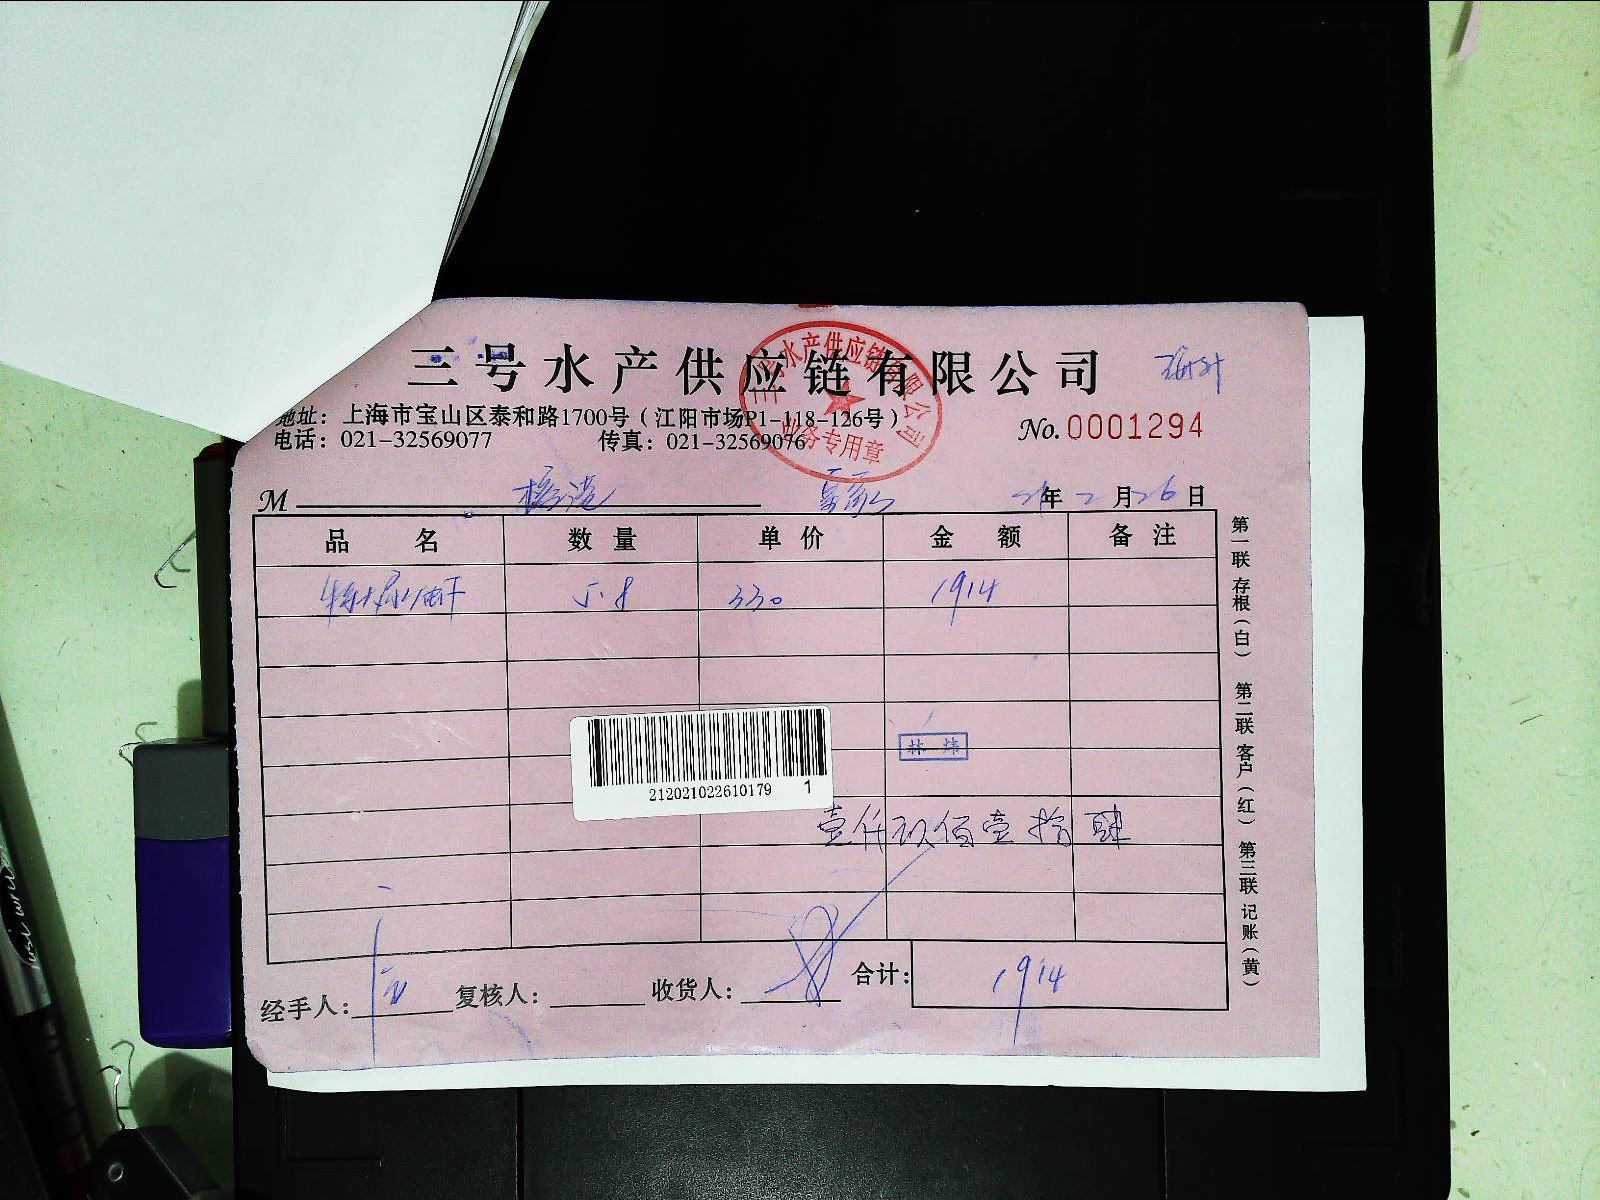 三号水产供应链有限公司
三号水产供应链有限公司
业务专用章
地址：上海市宝山区泰和路1700号（江阳市场P1-118-126号）
电话：021-32569077 传真：021-32569076
No.0001294
M 21年2月26日
品名 数量 单价 金额 备注
5.8 330 1914
林炜
212021022610179 1
壹仟玖佰壹拾肆
经手人： 复核人： 收货人： 合计：1914
第一联 存根（白） 第二联 客户（红） 第三联 记账（黄）